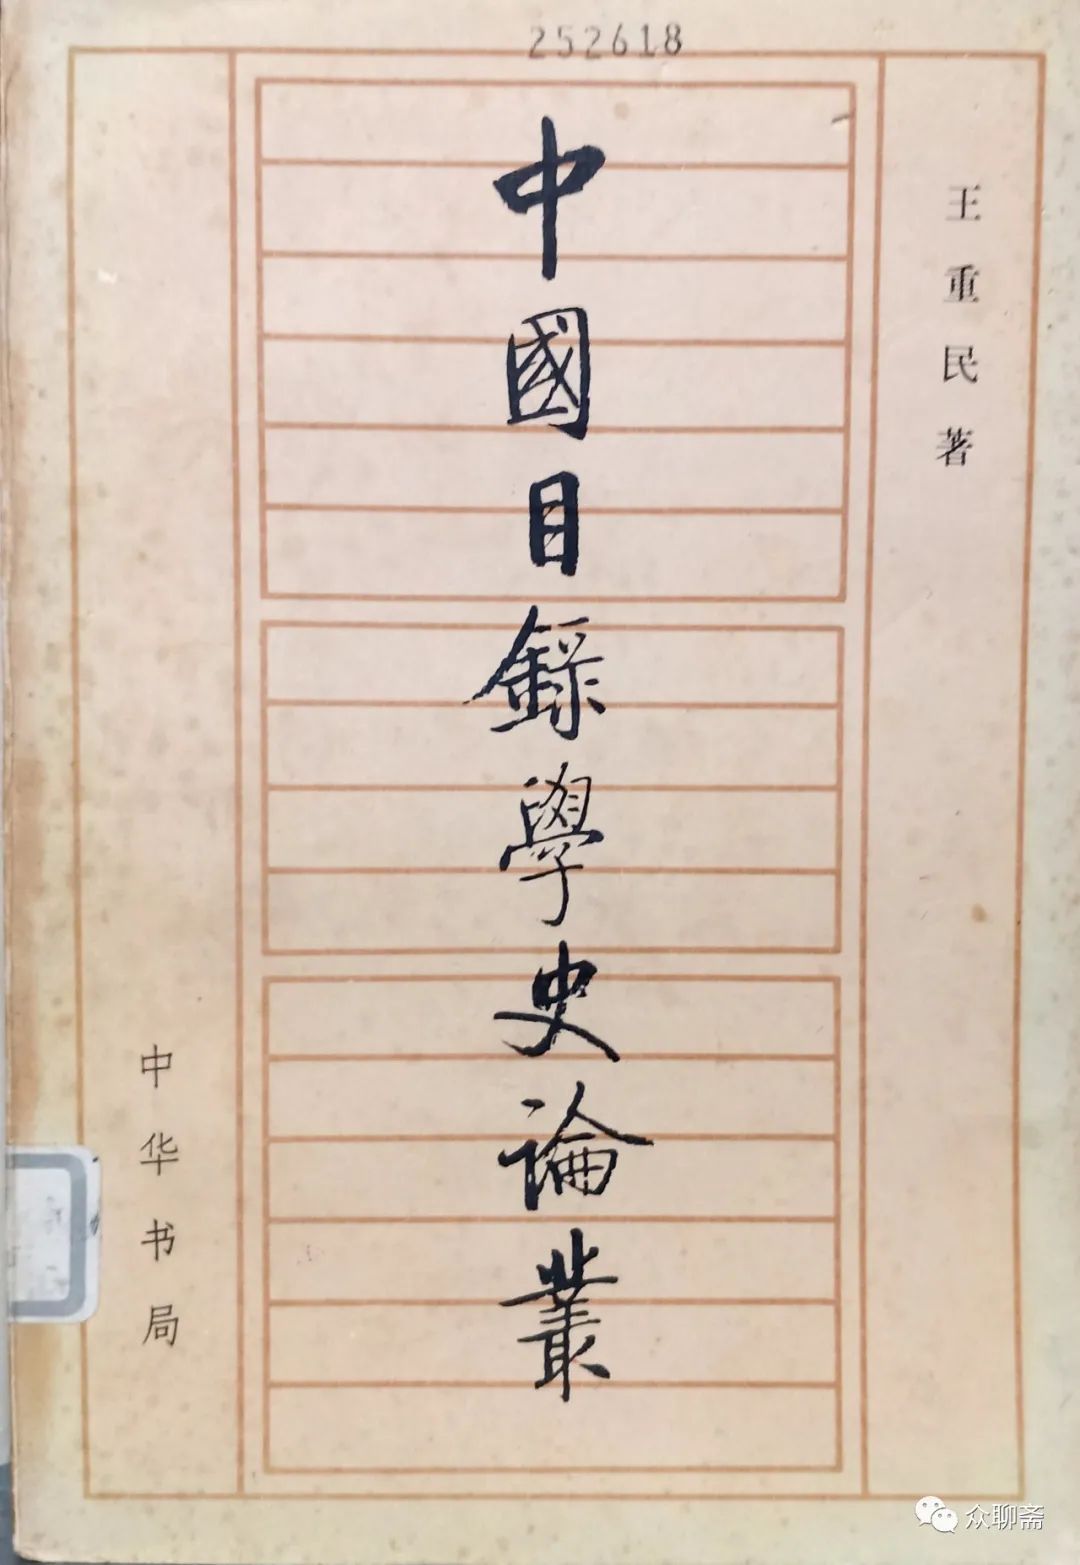 252618
王重民著
中國目錄學史論叢
中华书局
众聊斋